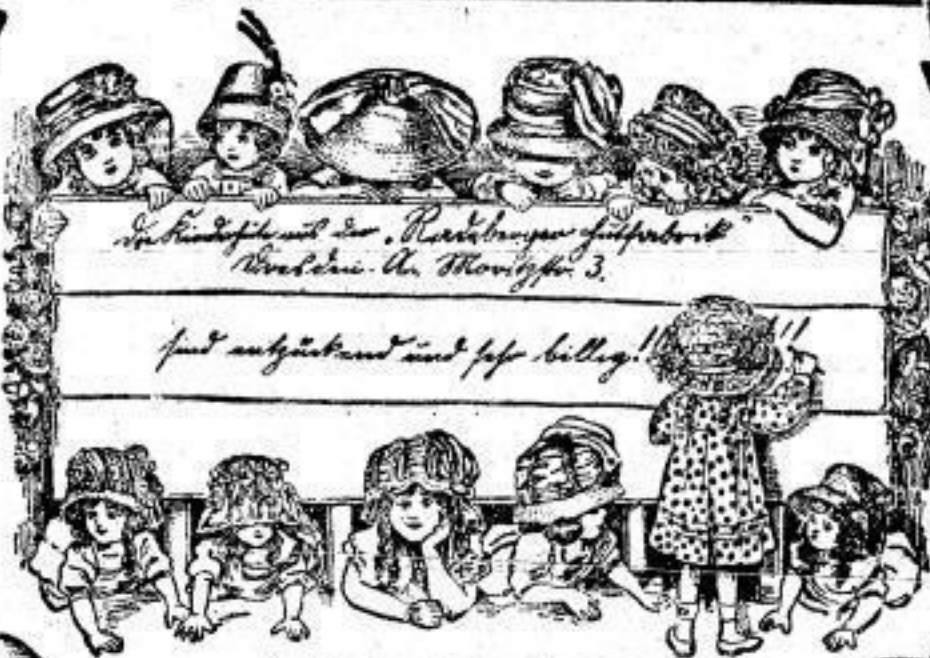 Die Kinderhüte aus der „Radeberger Hutfabrik"
Dresden-A. Moritzstr. 3.
sind entzückend und sehr billig!!!!!